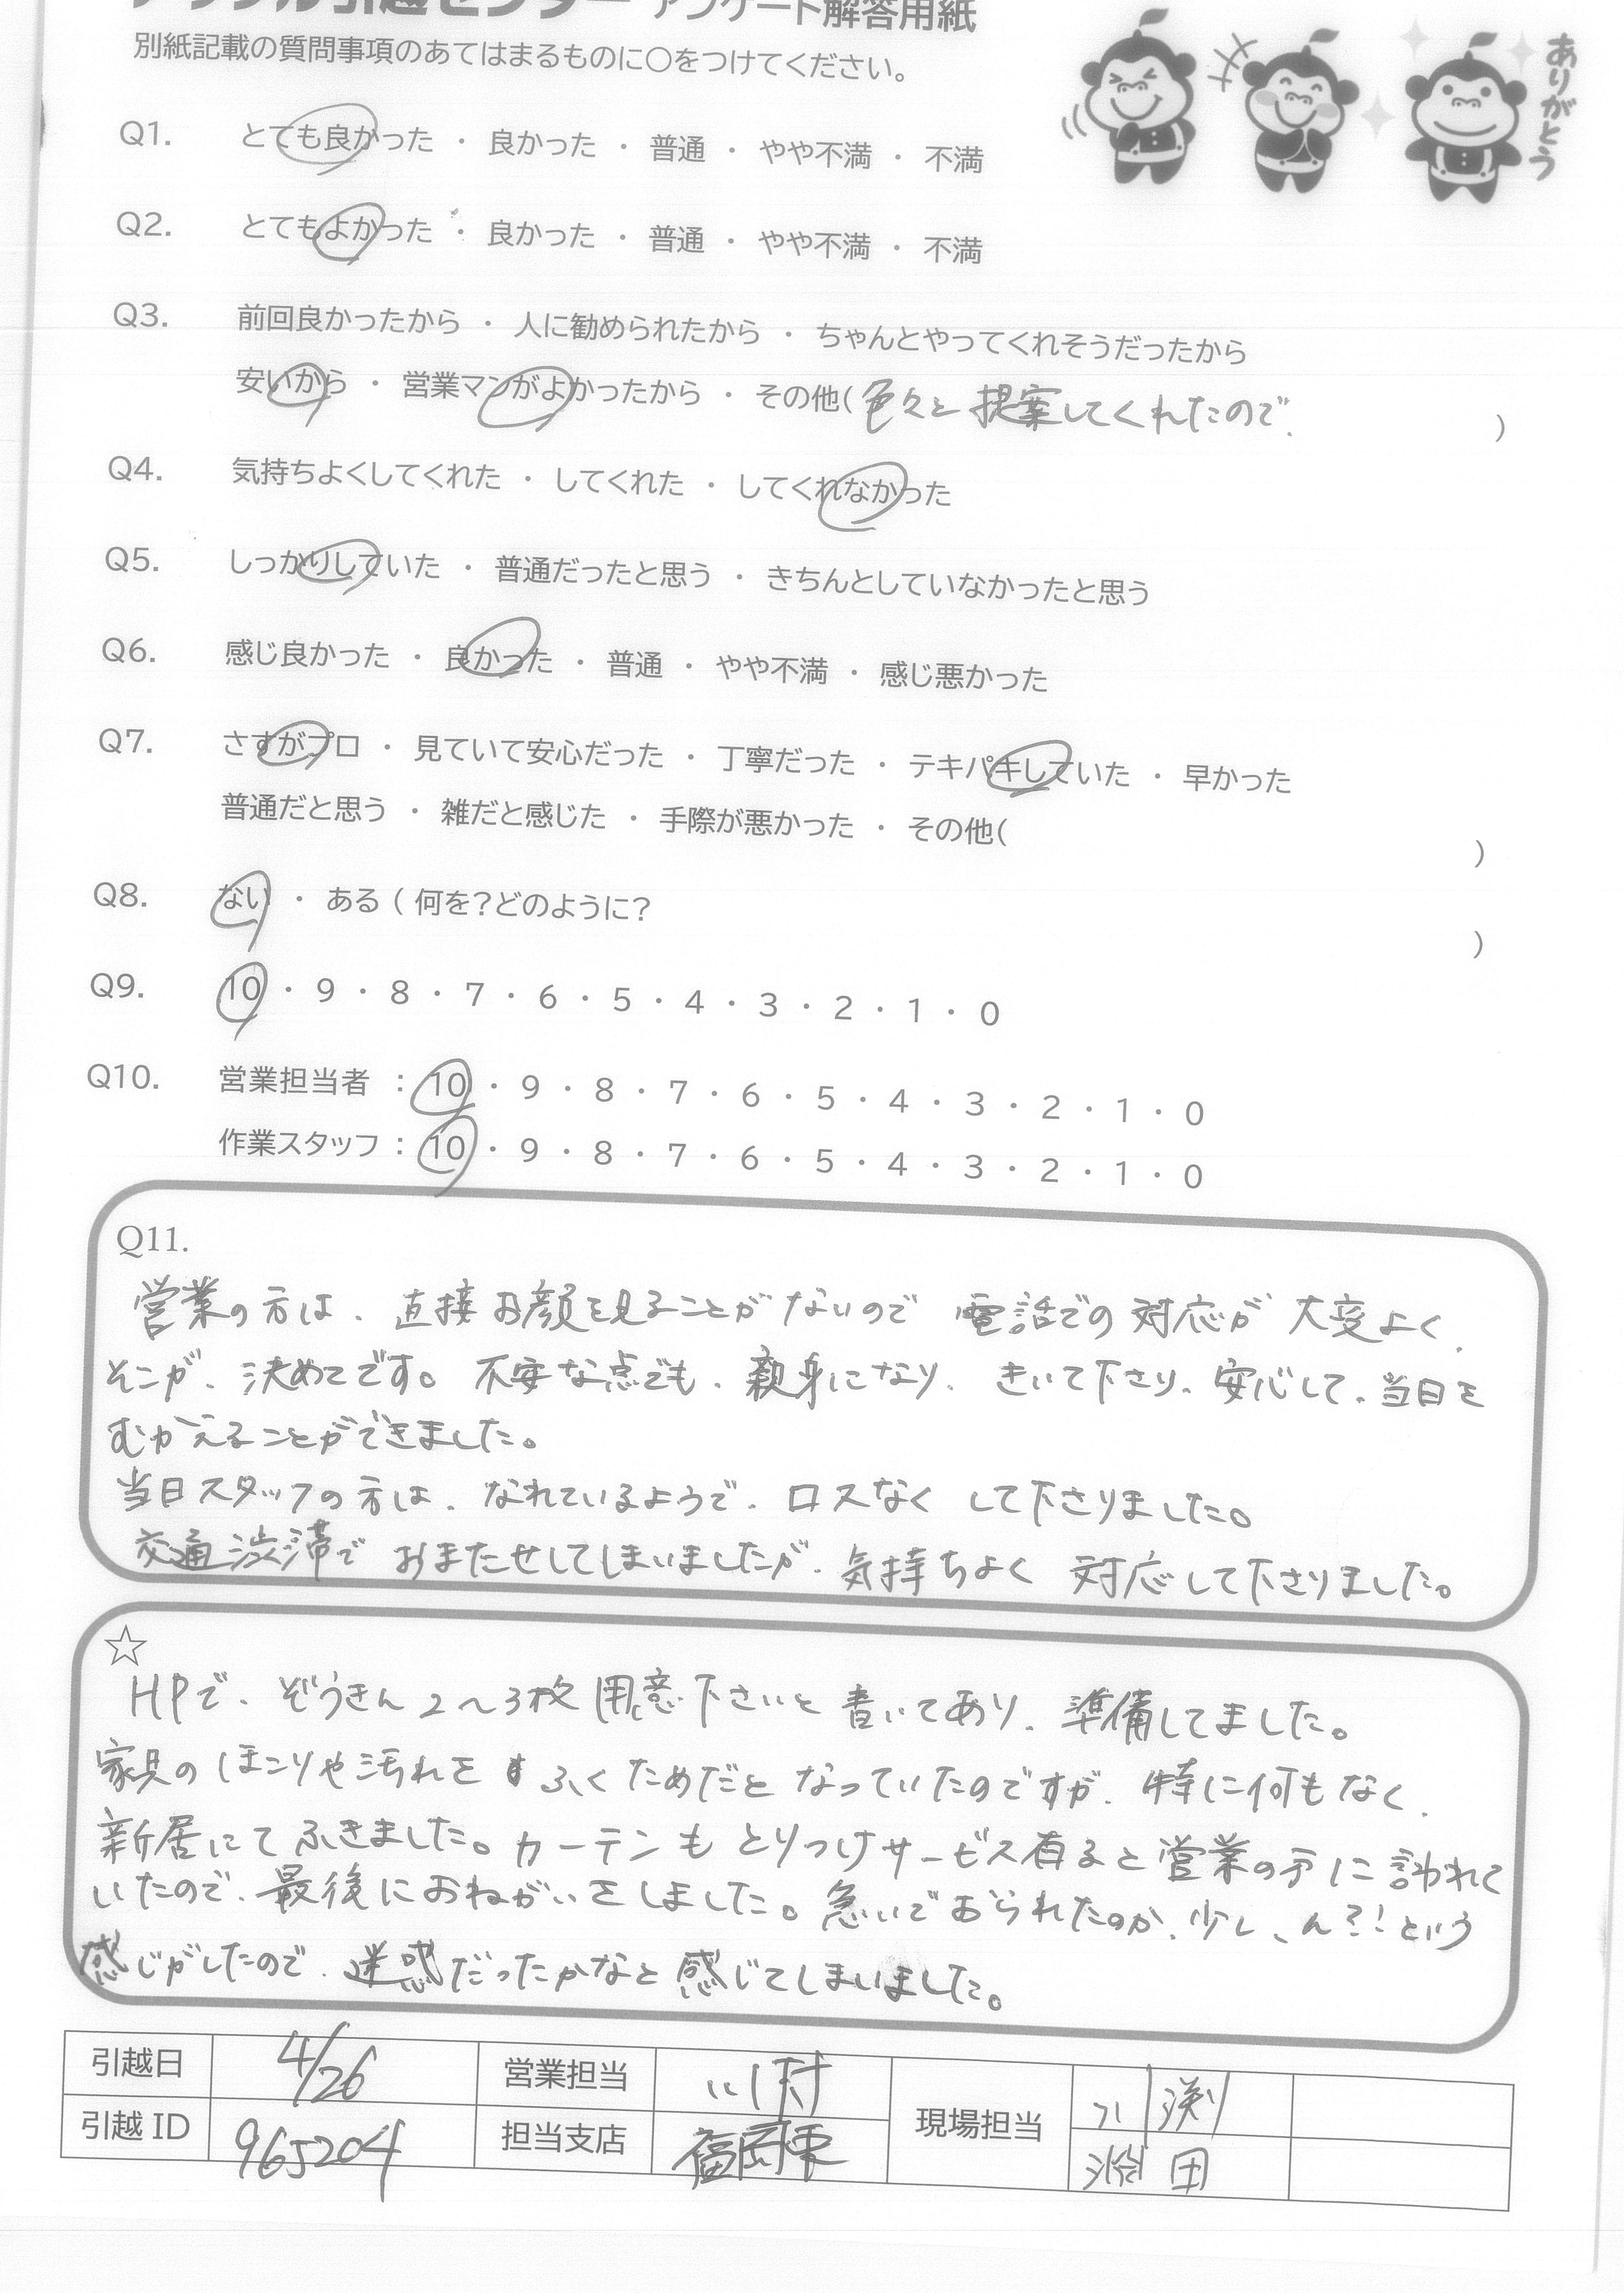 アップル引越センター アンケート解答用紙
別紙記載の質問事項のあてはまるものに○をつけてください。
ありがとう
Q1. とても良かった ・ 良かった ・ 普通 ・ やや不満 ・ 不満
Q2. とてもよかった ・ 良かった ・ 普通 ・ やや不満 ・ 不満
Q3. 前回良かったから ・ 人に勧められたから ・ ちゃんとやってくれそうだったから
安いから ・ 営業マンがよかったから ・ その他( 色々と提案してくれたので、 )
Q4. 気持ちよくしてくれた ・ してくれた ・ してくれなかった
Q5. しっかりしていた ・ 普通だったと思う ・ きちんとしていなかったと思う
Q6. 感じ良かった ・ 良かった ・ 普通 ・ やや不満 ・ 感じ悪かった
Q7. さすがプロ ・ 見ていて安心だった ・ 丁寧だった ・ テキパキしていた ・ 早かった
普通だと思う ・ 雑だと感じた ・ 手際が悪かった ・ その他( )
Q8. ない ・ ある ( 何を?どのように? )
Q9. 10 ・ 9 ・ 8 ・ 7 ・ 6 ・ 5 ・ 4 ・ 3 ・ 2 ・ 1 ・ 0
Q10. 営業担当者 : 10 ・ 9 ・ 8 ・ 7 ・ 6 ・ 5 ・ 4 ・ 3 ・ 2 ・ 1 ・ 0
作業スタッフ : 10 ・ 9 ・ 8 ・ 7 ・ 6 ・ 5 ・ 4 ・ 3 ・ 2 ・ 1 ・ 0
Q11.
営業の方は、直接お顔を見ることがないので 電話での対応が大変よく、
そこが、決めてです。不安な点でも、親身になり、きいて下さり、安心して、当日を
むかえることができました。
当日スタッフの方は、なれているようで、ロスなく して下さりました。
交通渋滞で おまたせしてしまいましたが、気持ちよく 対応して下さりました。
☆
HPで、ぞうきん2〜3枚用意下さいと書いてあり、準備してました。
家具のほこりや汚れを ふくためだと なっていたのですが、特に何もなく、
新居にてふきました。カーテンも とりつけサービス有ると営業の方に訊かれて
いたので、最後におねがいをしました。急いでおられたのか、少し、ん?!という
感じがしたので、迷惑だったかなと感じてしまいました。
引越日 4/26 営業担当 川村 現場担当 川渕
引越 ID 965204 担当支店 福岡東 田